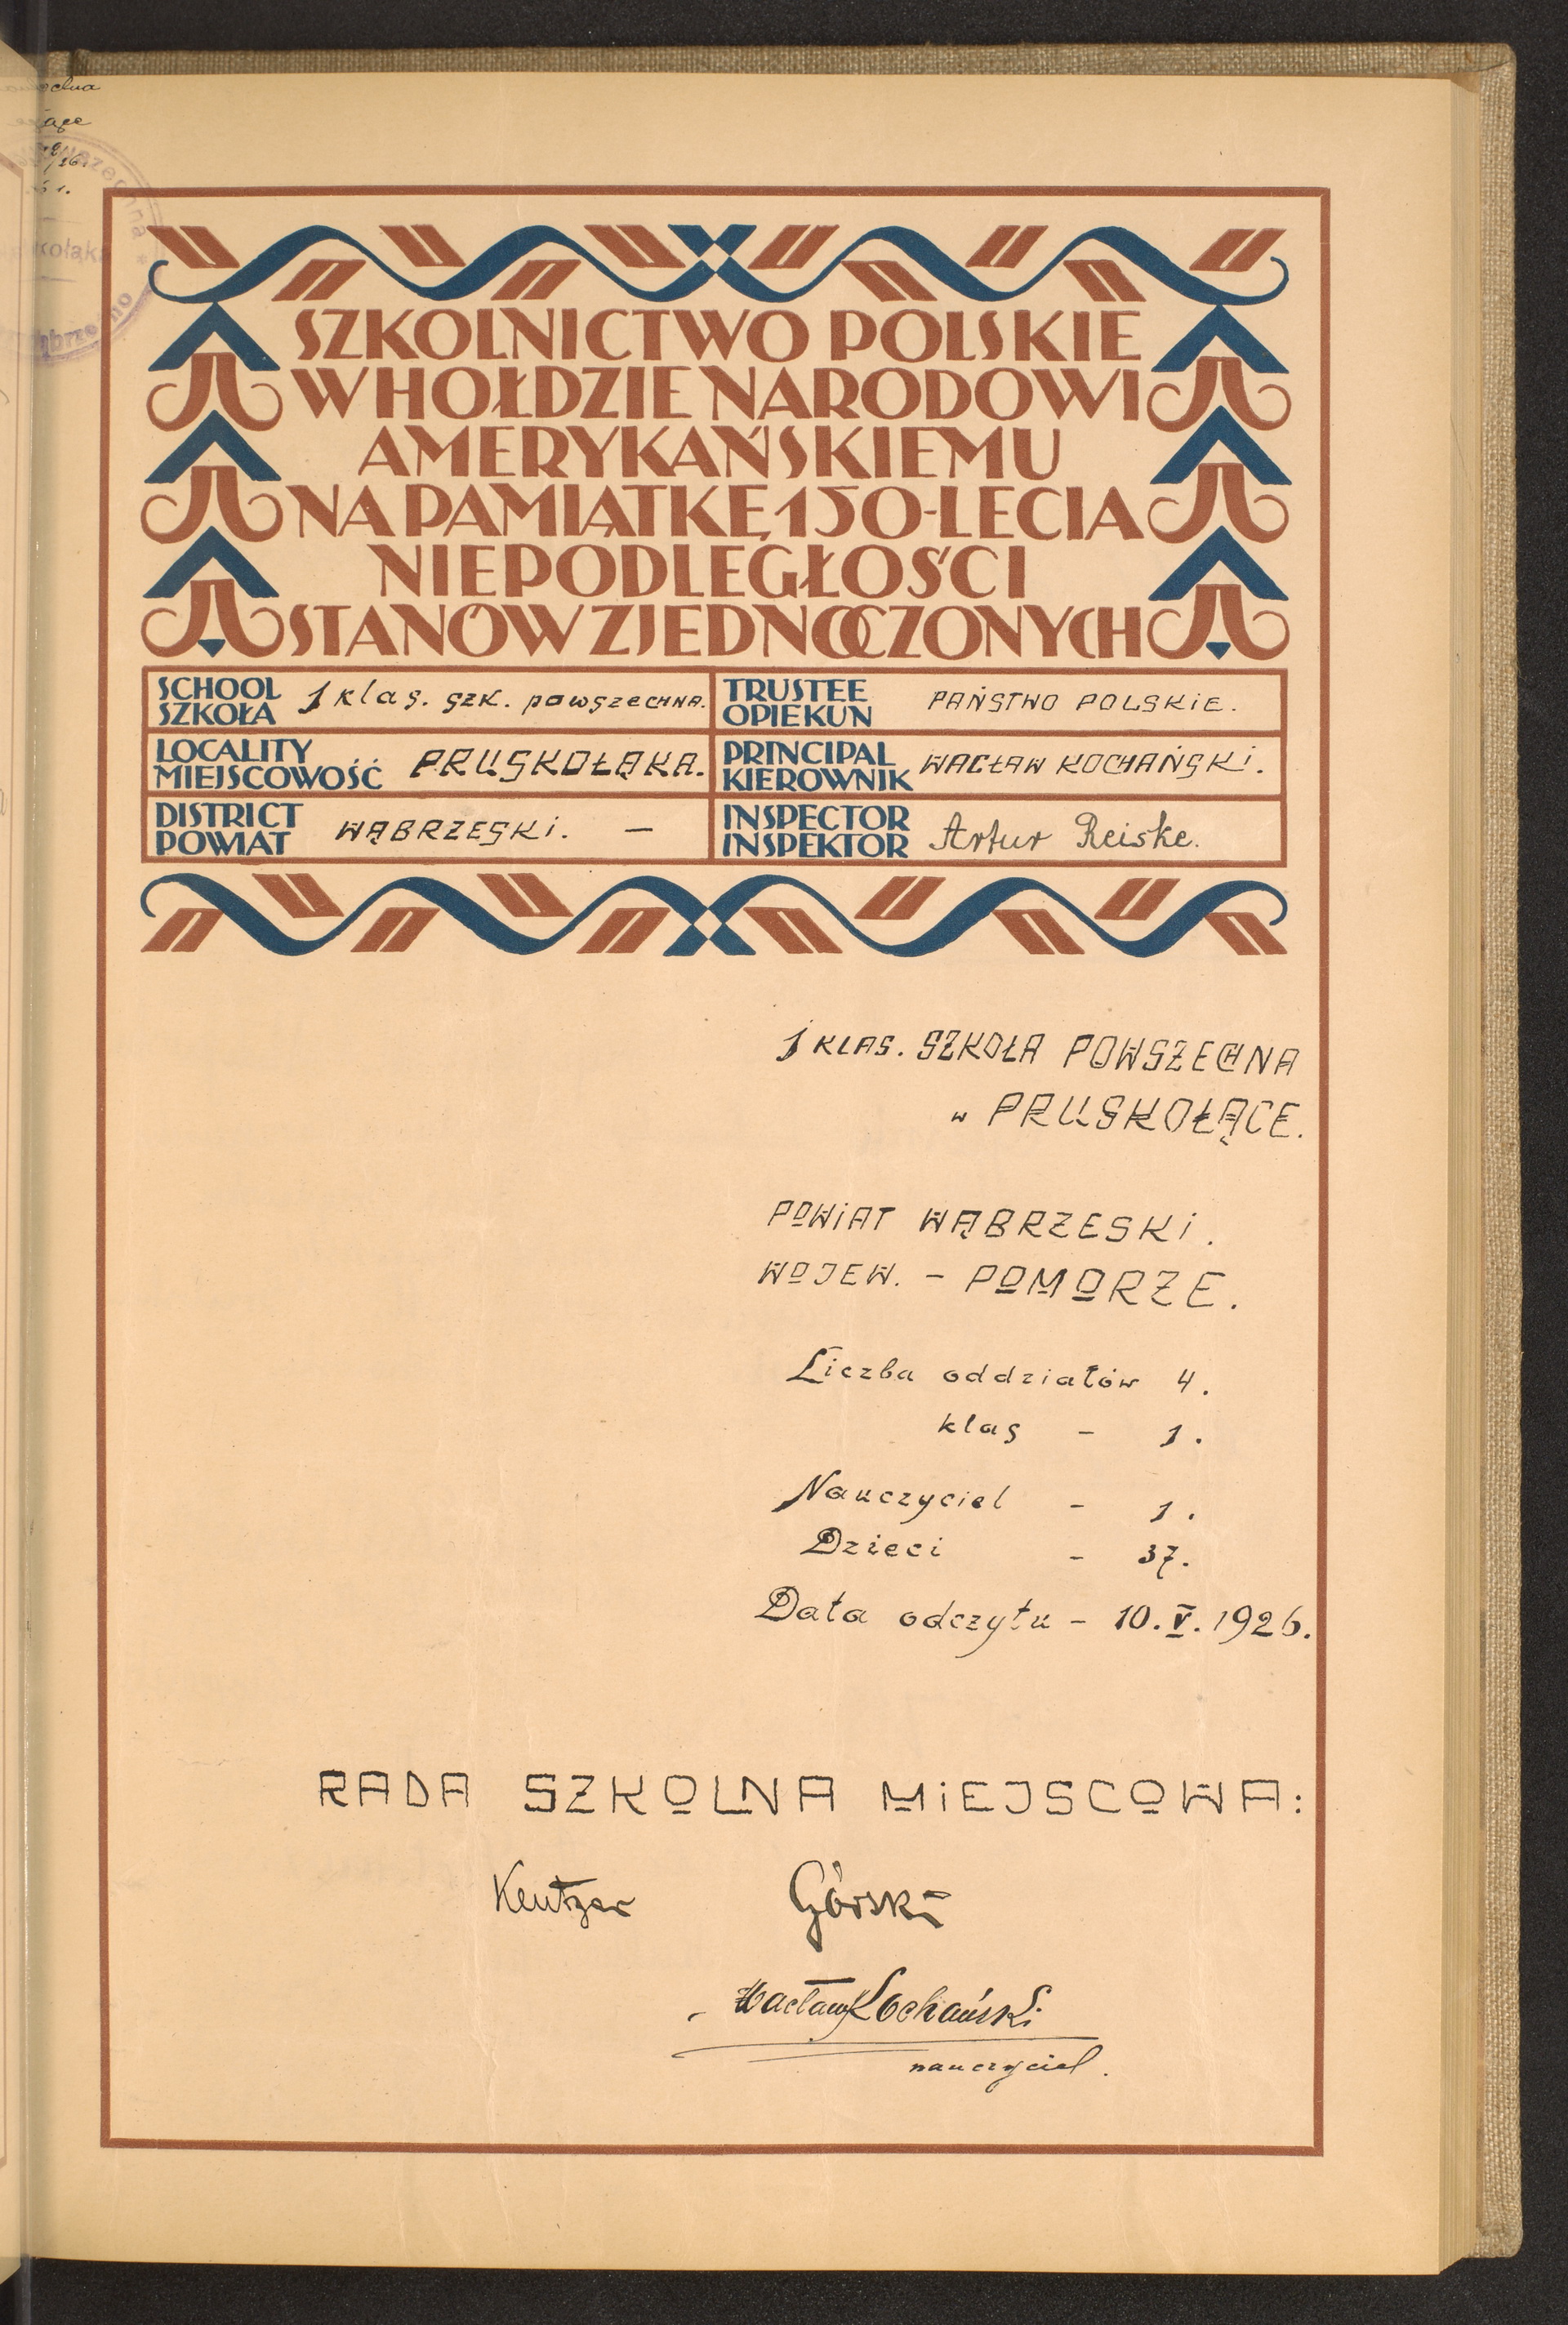 SZKOLNICTWO POLSKIE
W HOŁDZIE NARODOWI
AMERYKAŃSKIEMU
NA PAMIĄTKĘ 150-LECIA
NIEPODLEGŁOŚCI
STANÓW ZJEDNOCZONYCH
SCHOOL
SZKOŁA
1 klas. szk. powszechna.
TRUSTEE
OPIEKUN
PAŃSTWO POLSKIE.
LOCALITY
MIEJSCOWOŚĆ
PRUSKOŁĄKA.
PRINCIPAL
KIEROWNIK
WACŁAW KOCHAŃSKI.
DISTRICT
POWIAT
WĄBRZESKI. —
INSPECTOR
INSPEKTOR
Artur Reiske.
1 KLAS. SZKOŁA POWSZECHNA
w PRUSKOŁĄCE.
POWIAT WĄBRZESKI.
WOJEW. - POMORZE.
Liczba oddziałów 4.
klas - 1.
Nauczyciel - 1.
Dzieci - 37.
Data odczytu - 10.V.1926.
RADA SZKOLNA MIEJSCOWA:
Kentzer Górski
Wacław Kochański
nauczyciel.